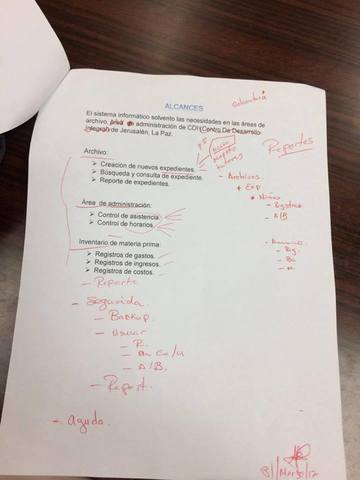 ALCANCES
El sistema informático solvento las necesidades en las áreas de
archivo, área de administración de CDI (Centro De Desarrollo
Integral) de Jerusalén, La Paz.
Archivo:
➤ Creación de nuevos expedientes.
➤ Búsqueda y consulta de expediente.
➤ Reporte de expedientes.
Área de administración:
➤ Control de asistencia.
➤ Control de horarios.
Inventario de materia prima:
➤ Registros de gastos.
➤ Registros de ingresos.
➤ Registros de costos.
- Reporte
- Seguridad.
- Backup
- Usuar
- R.
- A/B.
- Report.
- Ayuda.
Reportes
- Archivos
+ Exp.
• Niños
- Registrar
- A/B